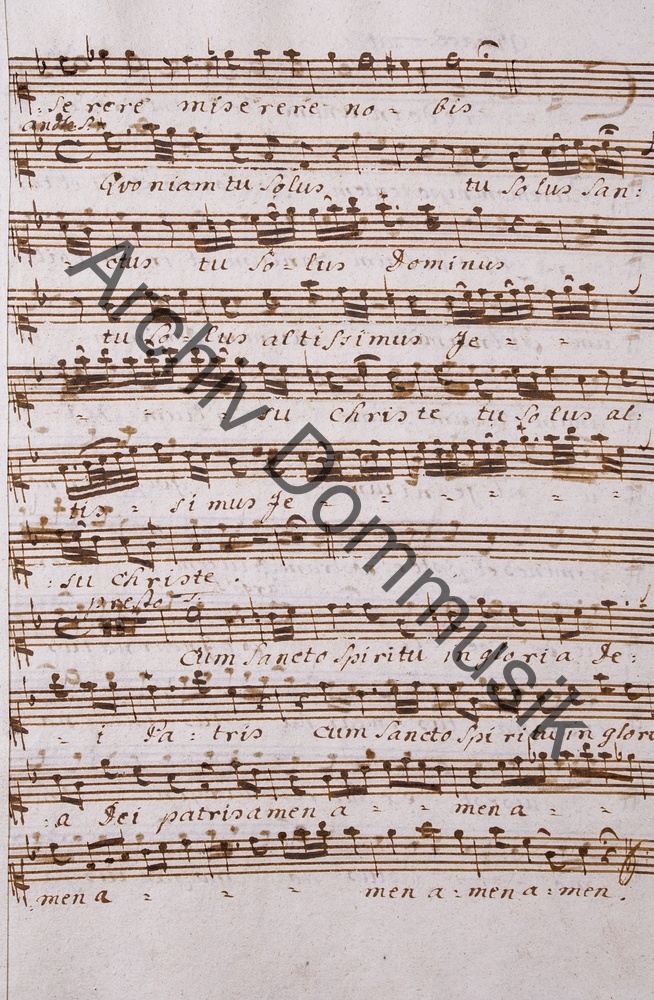 : se rere miserere no - bis
andte S:
Quoniam tu Solus tu Solus San:
ctus tu So - lus Dominus
tu So - lus altissimus Je - - -
- - - su Christe tu Solus al:
tis - simus Je - - - - - -
: su Christe .
presto
Cum Sancto Spiritu in gloria De:
- i Pa : tris Cum Sancto Spiritu in glori
: a Dei patris amen a - - men a - -
men a - - - men a : men a : men .
Archiv Dommusik